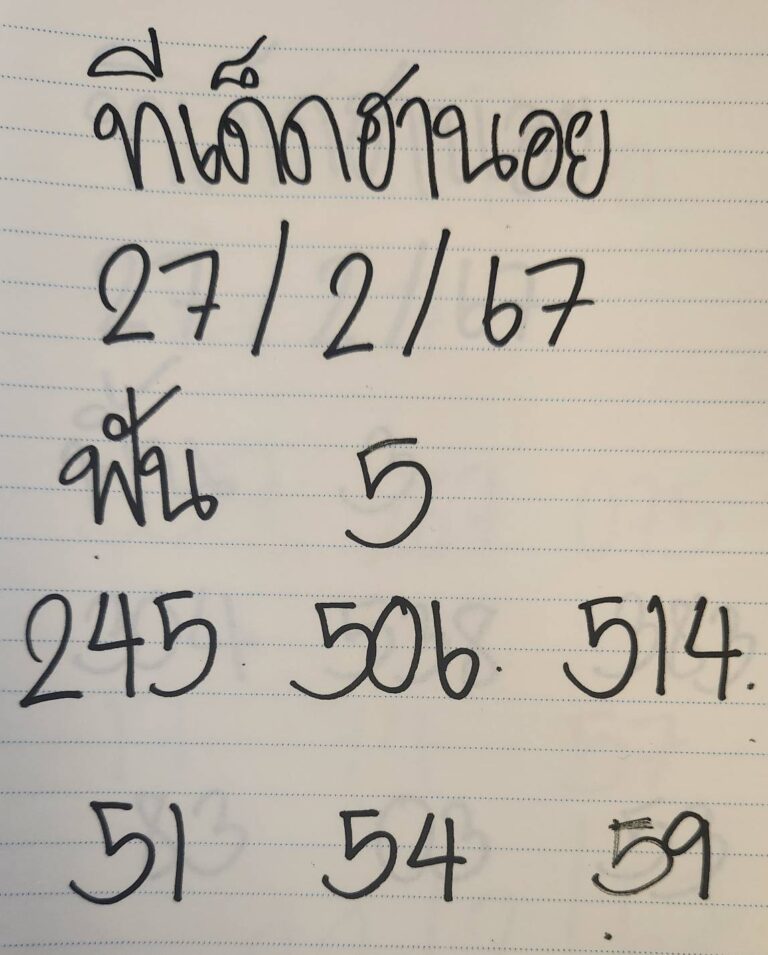 ทีเด็ดฮานอย
27/2/67
ฟัน 5
245. 506. 514.
51 54 59